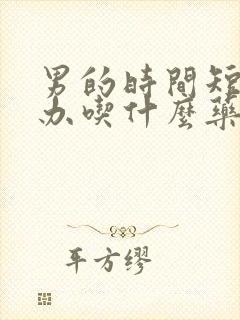 男的時間短
办喫什麼藥
平方缪